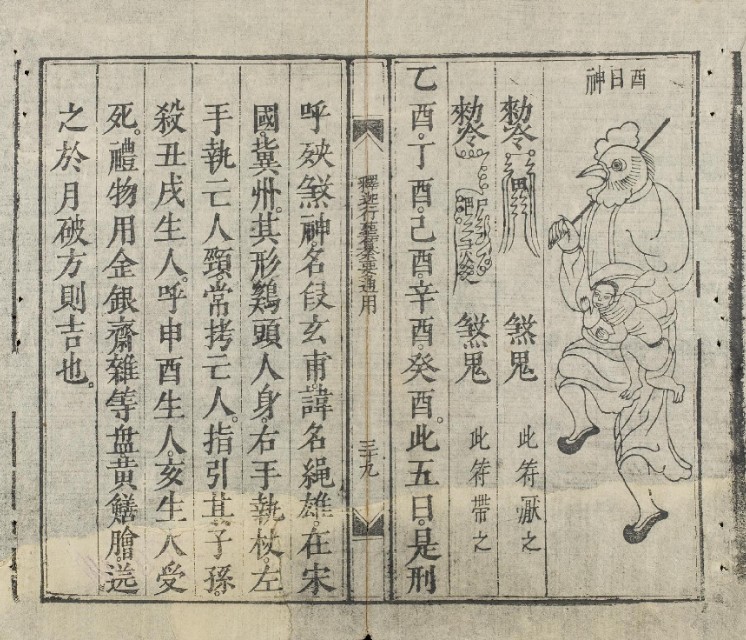 酉日神
勅令 煞鬼 此符厭之
勅令 煞鬼 此符帶之
乙酉。丁酉。己酉。辛酉。癸酉。此五日。是刑
釋迦行 要通用 三十九
呼殃煞神。名段玄甫。諱名繩雄。在宋
國。冀州。其形鷄頭人身。右手執杖。左
手執亡人頸。常拷亡人。指引其子孫。
殺丑戌生人。呼申酉生人。亥生人受
死。禮物用金銀齋雜等盘黄鱔膾。送
之於月破方則吉也。